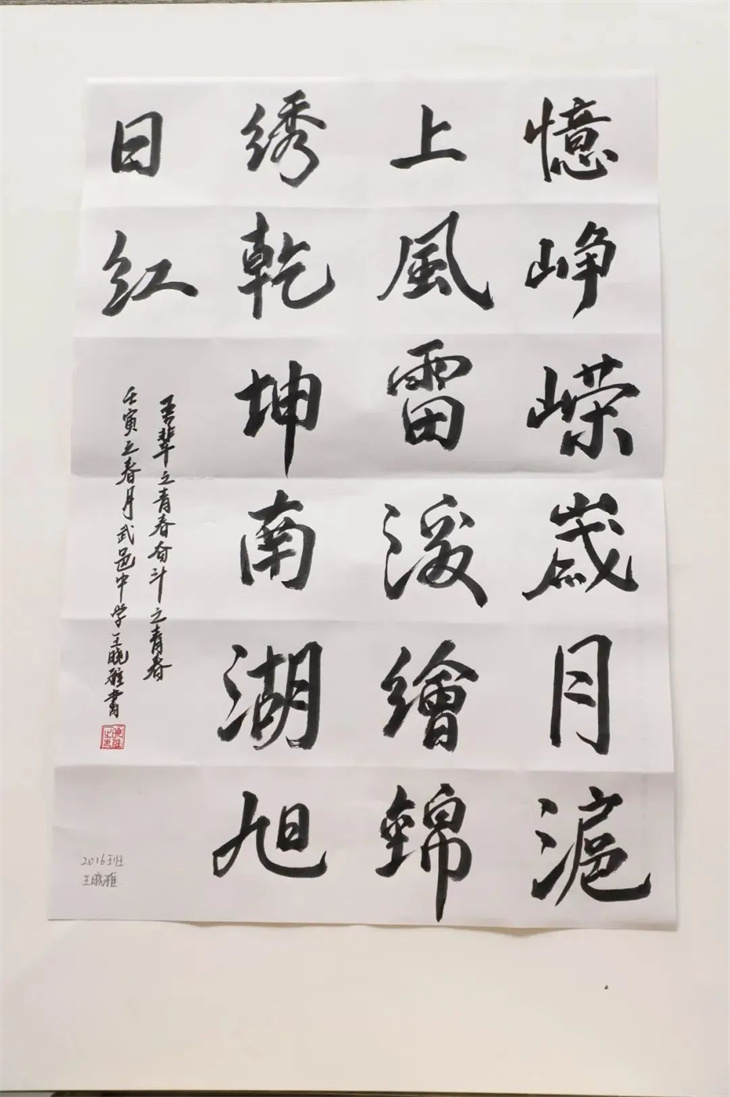 憶峥嵘歲月滬
上風雷繪錦
绣乾坤南湖旭
日红
吾辈之青春奋斗之青春
壬寅立春月武邑中学王晓雅書
2016班
王晓雅